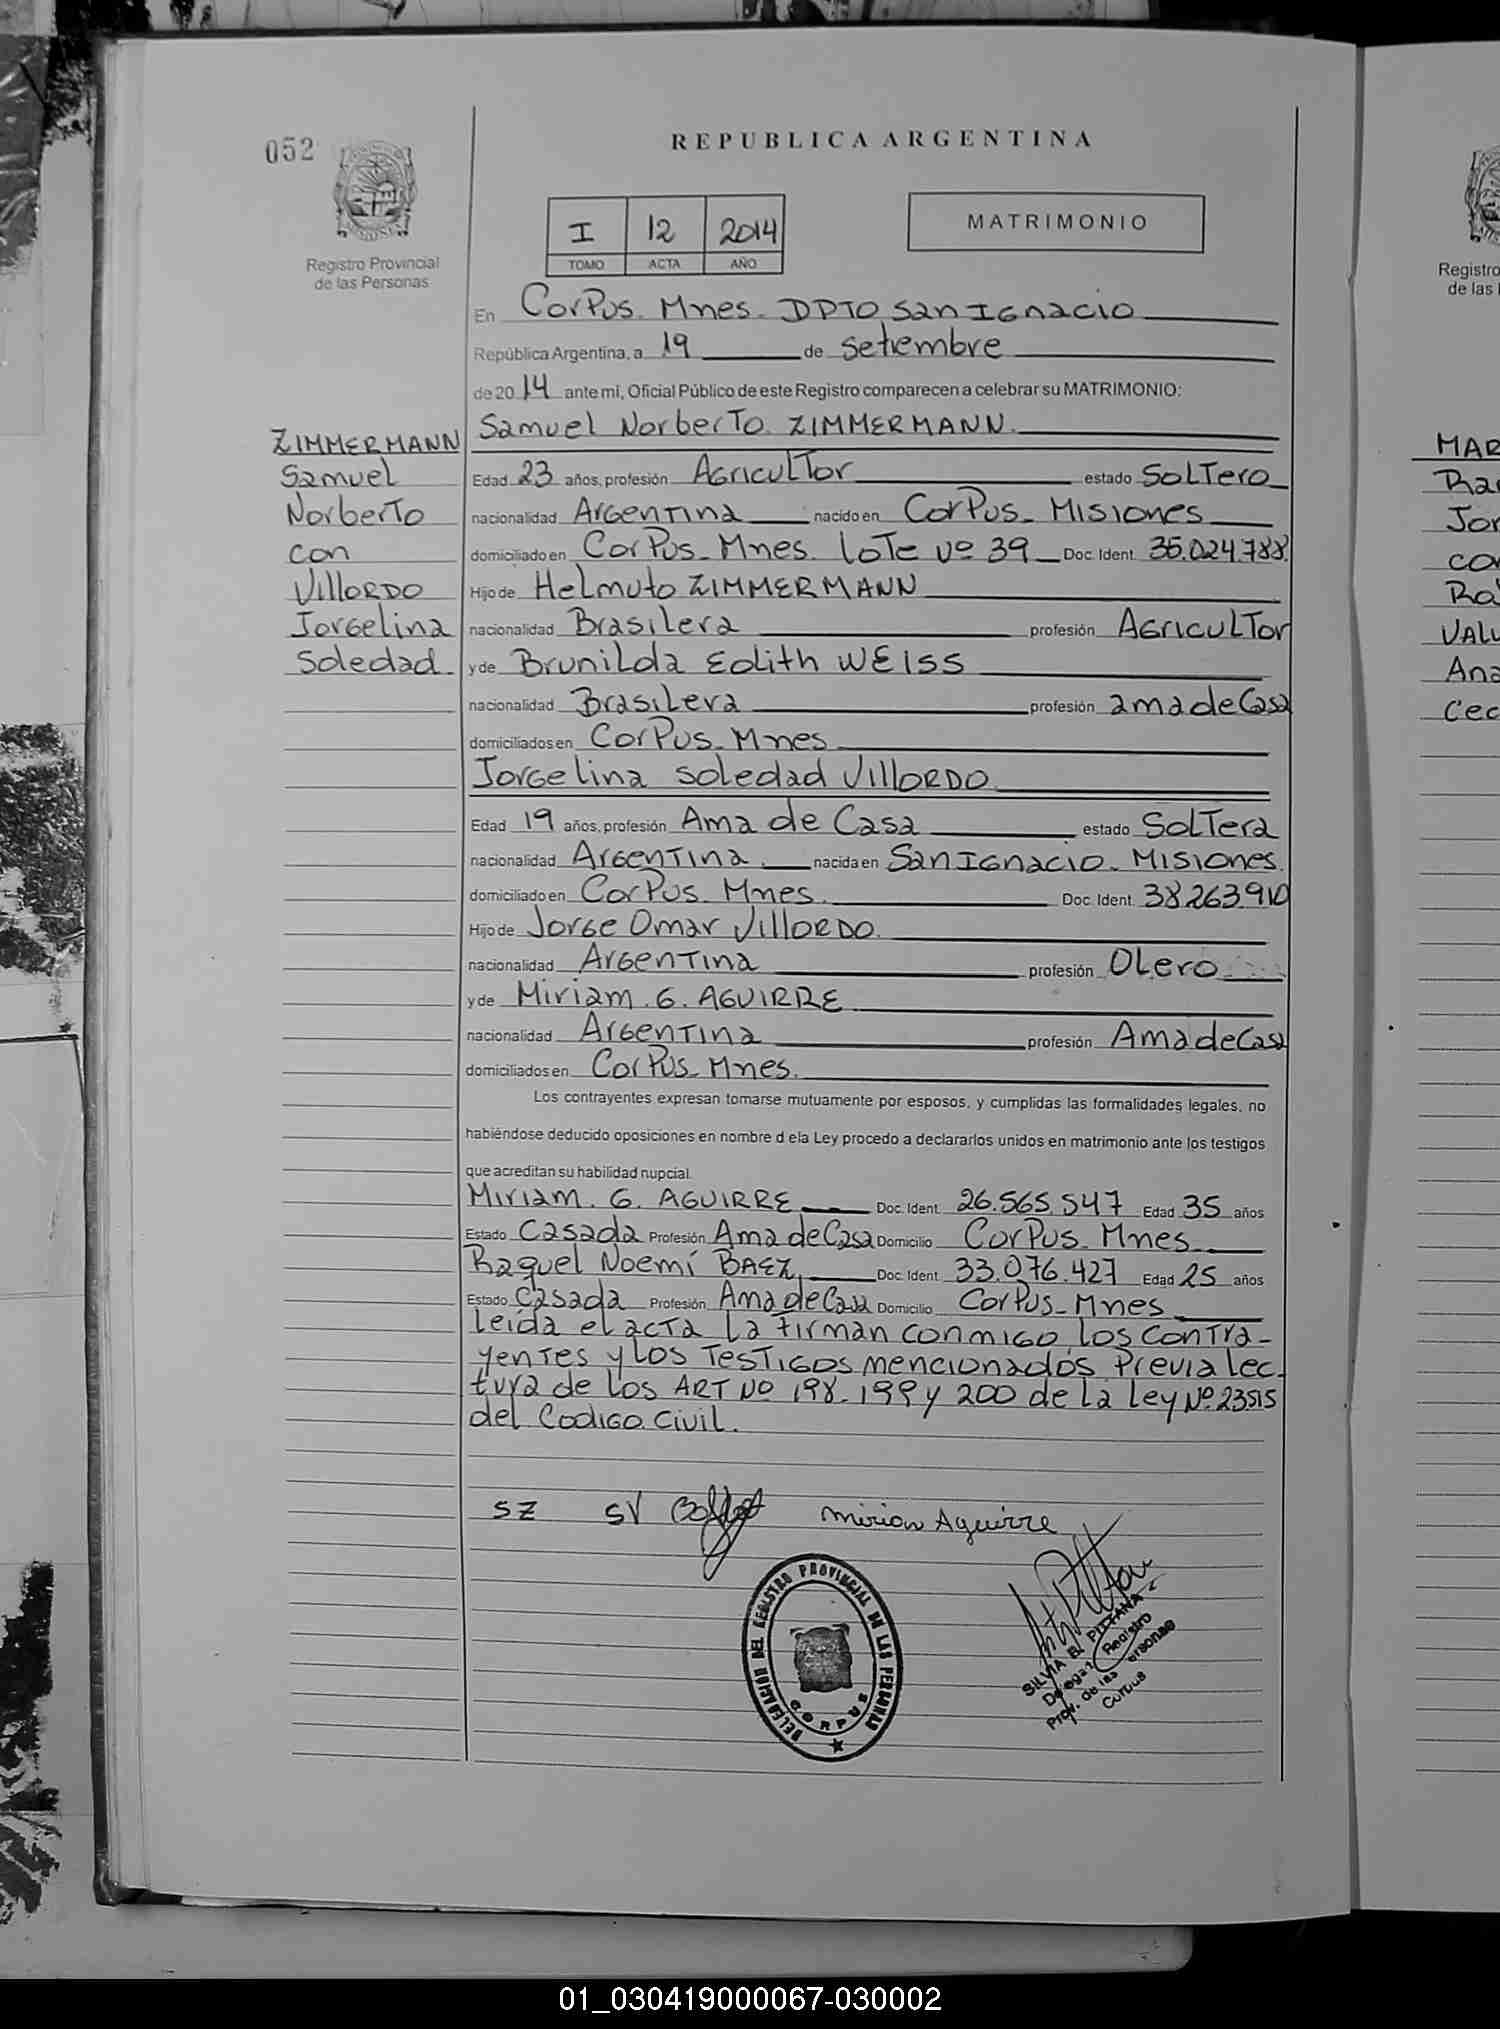 052
REPUBLICA ARGENTINA
I 12 2014
TOMO ACTA AÑO
MATRIMONIO
Registro Provincial
de las Personas
En Corpus. Mnes. DPTO San Ignacio
República Argentina, a 19 de Setiembre
de 2014 ante mi, Oficial Público de este Registro comparecen a celebrar su MATRIMONIO:
Samuel Norberto ZIMMERMANN
ZIMMERMANN
Samuel
Norberto
con
VILLORDO
Jorgelina
Soledad
Edad 23 años, profesión Agricultor estado Soltero
nacionalidad Argentina nacido en Corpus. Misiones
domiciliado en Corpus. Mnes. lote nº 39 Doc. Ident. 35.024.788.
Hijo de Helmuto ZIMMERMANN
nacionalidad Brasilera profesión Agricultor
y de Brunilda Edith WEISS
nacionalidad Brasilera profesión ama de Casa
domiciliados en Corpus. Mnes
Jorgelina Soledad VILLORDO
Edad 19 años, profesión Ama de Casa estado Soltera
nacionalidad Argentina. nacida en San Ignacio. Misiones.
domiciliado en Corpus. Mnes. Doc. Ident. 38263.910
Hijo de Jorge Omar VILLORDO.
nacionalidad Argentina profesión Olero
y de Miriam. G. AGUIRRE
nacionalidad Argentina profesión Ama de Casa
domiciliados en Corpus. Mnes.
Los contrayentes expresan tomarse mutuamente por esposos, y cumplidas las formalidades legales, no
habiéndose deducido oposiciones en nombre d ela Ley procedo a declararlos unidos en matrimonio ante los testigos
que acreditan su habilidad nupcial.
Miriam. G. AGUIRRE Doc. Ident. 26.565.547 Edad 35 años
Estado Casada Profesión Ama de Casa Domicilio Corpus. Mnes.
Raquel Noemí BAEZ, Doc. Ident. 33.076.427 Edad 25 años
Estado Casada Profesión Ama de Casa Domicilio Corpus. Mnes
leída el acta la firman conmigo los contra-
yentes y los Testigos mencionados Previa lec
tura de los ART Nº 198. 199 y 200 de la Ley Nº 23515
del Codigo Civil.
SZ SV Mirian Aguirre
DELEGACION DEL REGISTRO PROVINCIAL DE LAS PERSONAS
CORPUS
SILVIA E. PITTANA
Delegat Registro
Prov. de las Personas
Corpus
Registro
de las
MAR
Jor
con
VALU
Ana
Cec
01_030419000067-030002